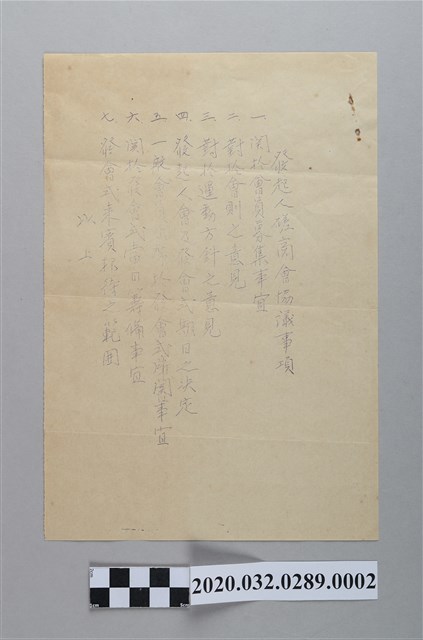 發起人磋商會協議事項
一 關於會員募集事宜
二 對於會則之意見
三 對於運動方針之意見
四 發起人會及發會式期日之決定
五 一般會員 以發會式 關事宜
六 關於發會式當日準備事宜
七 發會式來賓招待之範圍
以上
2020.032.0289.0002